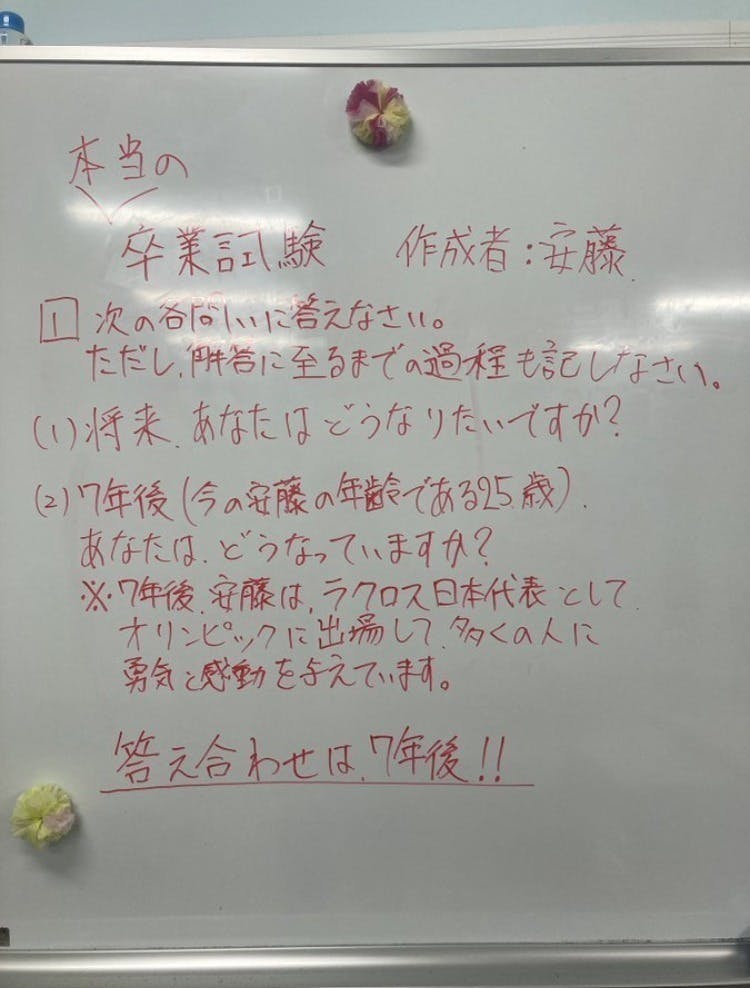 本当の
卒業試験 作成者:安藤
1 次の各問いに答えなさい。
ただし、解答に至るまでの過程も記しなさい。
(1) 将来、あなたはどうなりたいですか?
(2) 7年後(今の安藤の年齢である25歳)、
あなたは、どうなっていますか?
※7年後、安藤は、ラクロス日本代表として
オリンピックに出場して、多くの人に
勇気と感動を与えています。
答え合わせは、7年後!!